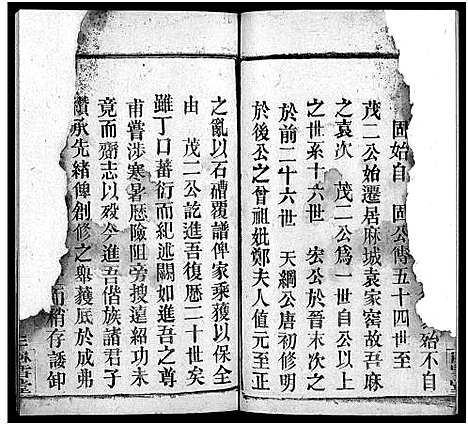 始不自
固始自　固公傳五十四世至
茂二公始遷居麻城袁家窑故吾麻
之袁次　茂二公爲一世自公以上
之世系十六世　宏公於晉末次之
於前二十六世　天綱公唐初修明
於後公之曾祖妣鄭夫人值元至正
之亂以石磧覆譜俾家乘獲以保全
由　茂二公訖進吾復歷二十世矣
雖丁口蕃衍而紀述闕如進吾之尊
甫嘗涉寒暑歷險阻旁搜遠紹功未
竟而齎志以殁今進吾偕族諸君子
纘承先緒俾創修之舉獲底於成弗
而稍存諉卸